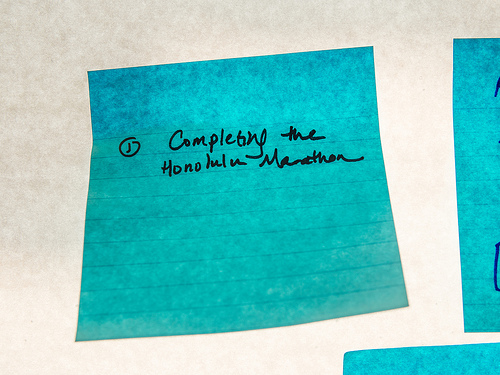 ① Completing the
Honolulu Marathon